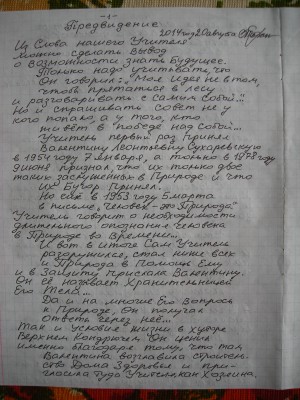 -1-
Предвидение
2014 год 20 августа
Из Слова нашего Учителя
можно сделать вывод
о возможности знать будущее.
Только надо учитывать, что
Он говорил: "Моя идея не в том,
чтобы прятаться в лесу
и разговаривать с самим собой..."
Но и спрашивать совет не у
кого попало, а у того, кто
живёт в "победе над собой..."
Учитель первый раз принял
Валентину Леонтьевну Сухаревскую
в 1954 году 7 января, а только в 1978 году
июня признал, что их только двое
таких заслуженных в Природе и что
их Бугор Принял.
Но ещё в 1953 году 5 марта
в письме, "Человек - это Природа"
Учитель говорит о необходимости
длительного опознание человека
в Природе во Времени...
И вот в итоге Сам Учитель
разоружился, стал ниже всех
и Природа в Помощь Ему
и в Защиту прислала Валентину.
Он её называет Хранительницей
Его Тела...
Да и на многие Его вопросы
к Природе, Он получал
ответы через неё...
Так и условие жизни в хуторе
Верхнем Кондрючем Он ценил
именно благодаря тому, что там
Валентина возглавила строитель-
ство Дома Здоровья и при-
гласила туда Учителя как Хозяина.